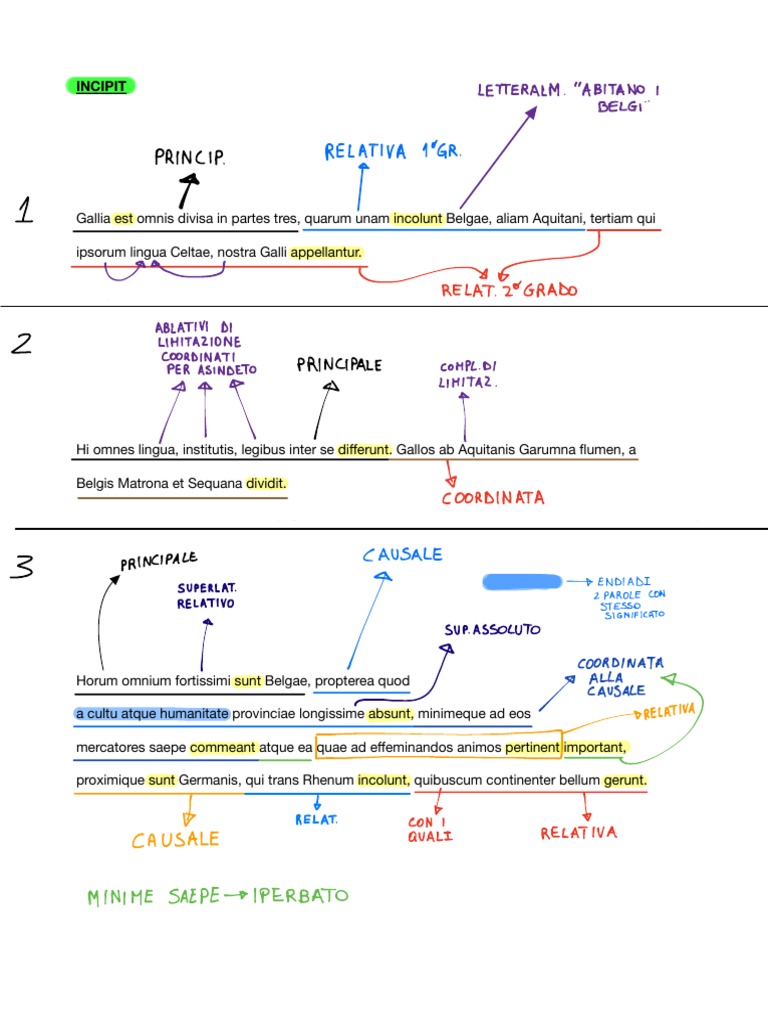 INCIPIT
LETTERALM. "ABITANO I
BELGI"
PRINCIP.
RELATIVA 1°GR.
1
Gallia est omnis divisa in partes tres, quarum unam incolunt Belgae, aliam Aquitani, tertiam qui
ipsorum lingua Celtae, nostra Galli appellantur.
RELAT. 2°GRADO
2
ABLATIVI DI
LIMITAZIONE
COORDINATI
PER ASINDETO
PRINCIPALE
COMPL. DI
LIMITAZ.
Hi omnes lingua, institutis, legibus inter se differunt. Gallos ab Aquitanis Garumna flumen, a
Belgis Matrona et Sequana dividit.
COORDINATA
3
PRINCIPALE
CAUSALE
SUPERLAT.
RELATIVO
ENDIADI
2 PAROLE CON
STESSO
SIGNIFICATO
SUP. ASSOLUTO
COORDINATA
ALLA
CAUSALE
Horum omnium fortissimi sunt Belgae, propterea quod
a cultu atque humanitate provinciae longissime absunt, minimeque ad eos
RELATIVA
mercatores saepe commeant atque ea quae ad effeminandos animos pertinent important,
proximique sunt Germanis, qui trans Rhenum incolunt, quibuscum continenter bellum gerunt.
CAUSALE
RELAT.
CON I
QUALI
RELATIVA
MINIME SAEPE → IPERBATO